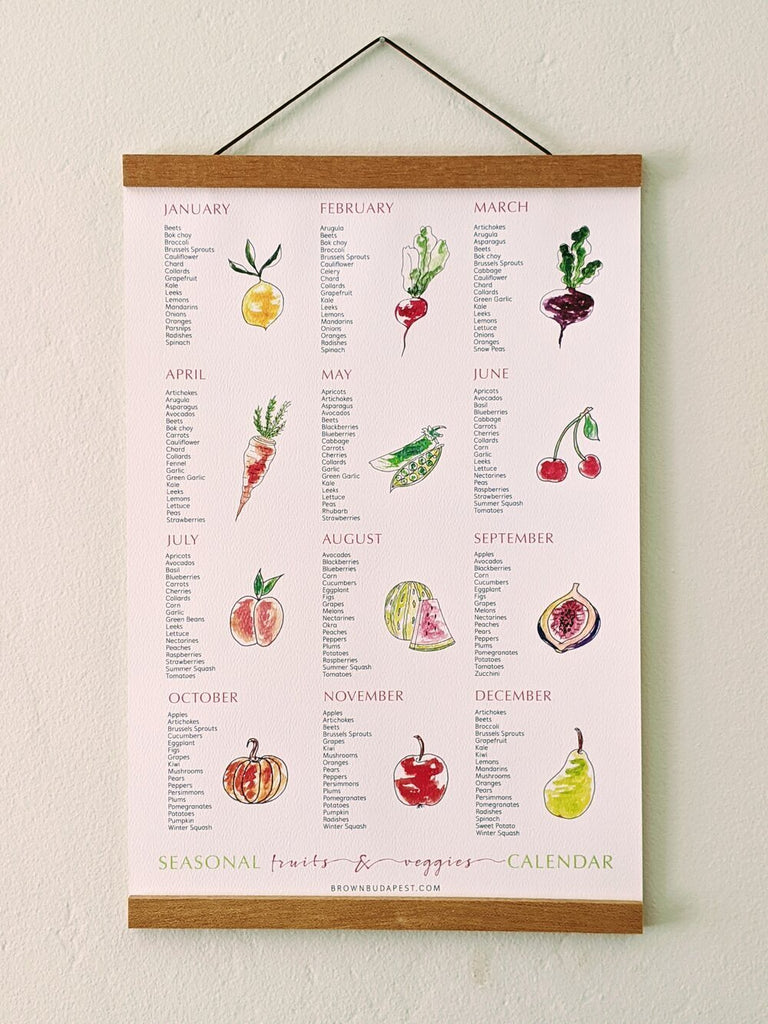 JANUARY
Beets
Bok choy
Broccoli
Brussels Sprouts
Cauliflower
Chard
Collards
Grapefruit
Kale
Leeks
Lemons
Mandarins
Onions
Oranges
Parsnips
Radishes
Spinach
FEBRUARY
Arugula
Beets
Bok choy
Broccoli
Brussels Sprouts
Cauliflower
Celery
Chard
Collards
Grapefruit
Kale
Leeks
Lemons
Mandarins
Onions
Oranges
Radishes
Spinach
MARCH
Artichokes
Arugula
Asparagus
Beets
Bok choy
Brussels Sprouts
Cabbage
Cauliflower
Chard
Collards
Green Garlic
Kale
Leeks
Lemons
Lettuce
Onions
Oranges
Snow Peas
APRIL
Artichokes
Arugula
Asparagus
Avocados
Beets
Bok choy
Carrots
Cauliflower
Chard
Collards
Fennel
Garlic
Green Garlic
Kale
Leeks
Lemons
Lettuce
Peas
Strawberries
MAY
Apricots
Artichokes
Asparagus
Avocados
Beets
Blackberries
Blueberries
Cabbage
Carrots
Cherries
Collards
Garlic
Green Garlic
Kale
Leeks
Lettuce
Peas
Rhubarb
Strawberries
JUNE
Apricots
Avocados
Basil
Blueberries
Cabbage
Carrots
Cherries
Collards
Corn
Garlic
Leeks
Lettuce
Nectarines
Peas
Raspberries
Strawberries
Summer Squash
Tomatoes
JULY
Apricots
Avocados
Basil
Blueberries
Carrots
Cherries
Collards
Corn
Garlic
Green Beans
Leeks
Lettuce
Nectarines
Peaches
Raspberries
Strawberries
Summer Squash
Tomatoes
AUGUST
Avocados
Blackberries
Blueberries
Corn
Cucumbers
Eggplant
Figs
Grapes
Melons
Nectarines
Okra
Peaches
Peppers
Plums
Potatoes
Raspberries
Summer Squash
Tomatoes
SEPTEMBER
Apples
Avocados
Blackberries
Corn
Cucumbers
Eggplant
Figs
Grapes
Melons
Nectarines
Peaches
Pears
Peppers
Plums
Pomegranates
Potatoes
Tomatoes
Zucchini
OCTOBER
Apples
Artichokes
Brussels Sprouts
Cucumbers
Eggplant
Figs
Grapes
Kiwi
Mushrooms
Pears
Peppers
Persimmons
Plums
Pomegranates
Potatoes
Pumpkin
Winter Squash
NOVEMBER
Apples
Artichokes
Beets
Brussels Sprouts
Grapes
Kiwi
Mushrooms
Oranges
Pears
Peppers
Persimmons
Plums
Pomegranates
Potatoes
Pumpkin
Radishes
Winter Squash
DECEMBER
Artichokes
Beets
Broccoli
Brussels Sprouts
Grapefruit
Kale
Kiwi
Lemons
Mandarins
Mushrooms
Oranges
Pears
Persimmons
Pomegranates
Radishes
Spinach
Sweet Potato
Winter Squash
SEASONAL fruits & veggies CALENDAR
BROWNBUDAPEST.COM